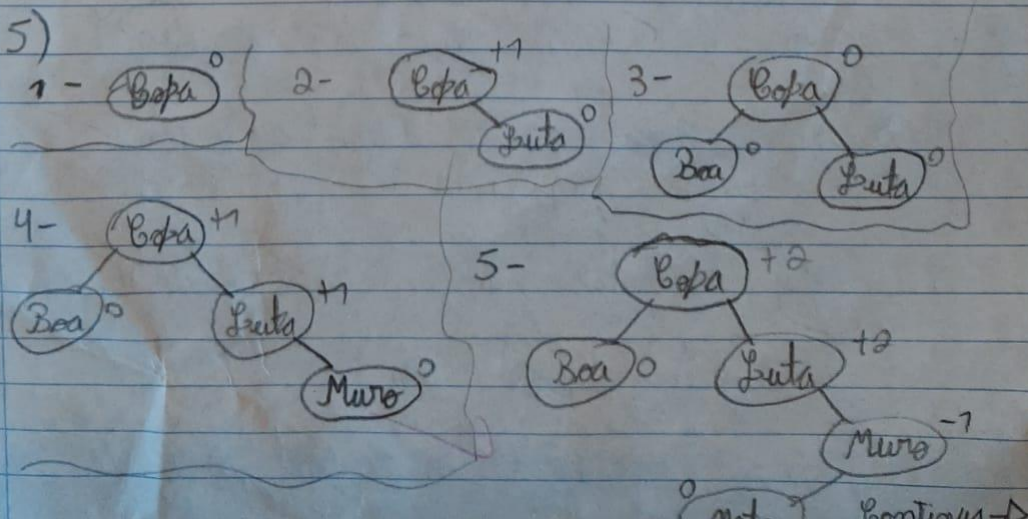 5)
1- Copa 0
2- Copa +1
Luta 0
3- Copa 0
Boa 0 Luta 0
4- Copa +1
Boa 0 Luta +1
Muro 0
5- Copa +2
Boa 0 Luta +2
Muro -1
0